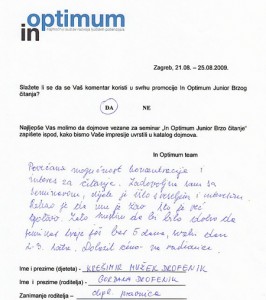 in optimum
Zagreb, 21.08. – 25.08.2009.
Slažete li se da se Vaš komentar koristi u svrhu promocije In Optimum Junior Brzog
čitanja?
DA NE
Najljepše Vas molimo da dojmove vezane za seminar „In Optimum Junior Brzo čitanje"
zapišete ispod, kako bismo Vaše impresije uvrstili u katalog dojmova.
In Optimum team
Povećana mogućnost koncentracije i
interes za čitanje. Zadovoljni smo sa
seminarom, dijete je bilo
da mu je žao što je već
gotovo. Zato mislimo da bi bilo dobro da
seminar traje još bar 5 dana, svaki dan
2-3 sata. Dolazit ćemo na radionice.
Ime i prezime (djeteta) - KREŠIMIR MUŽEK DROFENIK
Ime i prezime (roditelja) - GORDANA DROFENIK
Zanimanje roditelja – dipl. pravnica